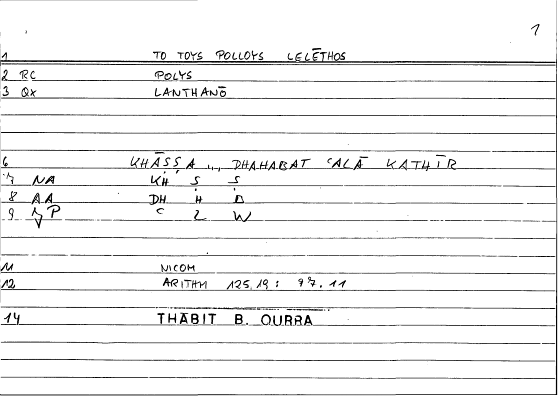 1
1 TO TOYS POLLOYS LELĒTHOS
2 RC POLYS
3 QX LANTHANŌ
6 KHĀṢṢA ... DHAHABAT ʿALĀ KATHĪR
7 NA KH Ṣ Ṣ
8 AA DH H B
9 P ʿ L W
11 NICOM
12 ARITHM 125.19: 97.11
14 THĀBIT B. QURRA